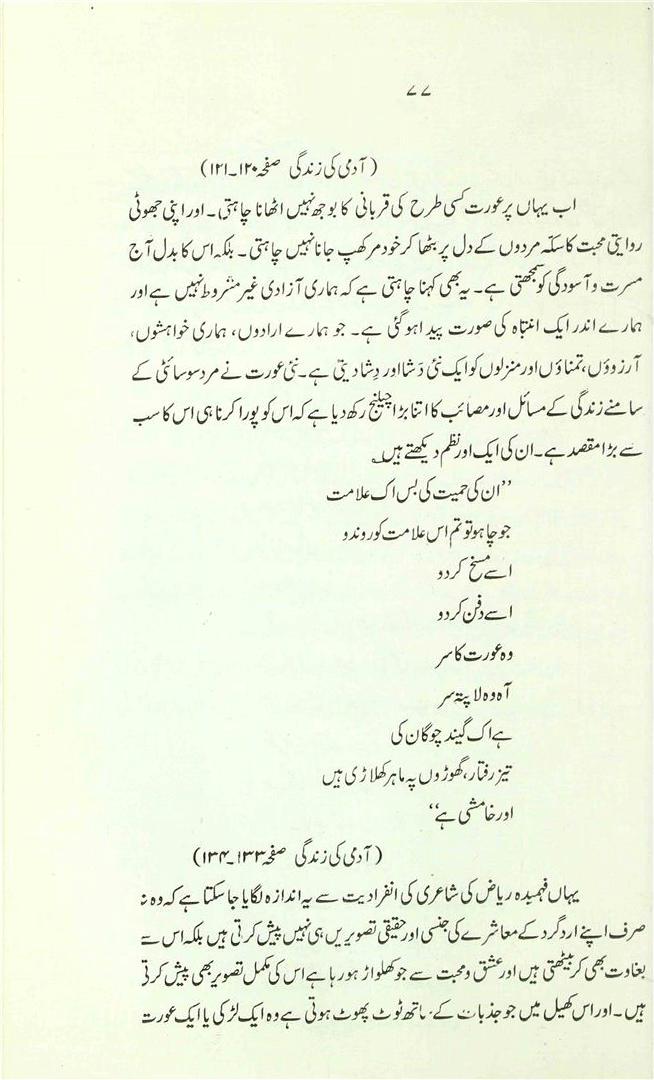 ۷۷
(آدمی کی زندگی صفحہ ۱۲۰۔۱۲۱)
اب یہاں پر عورت کسی طرح کی قربانی کا بوجھ نہیں اٹھانا چاہتی۔ اور اپنی جھوٹی
روایتی محبت کا سکّہ مردوں کے دل پر بٹھا کر خود مرکھپ جانا نہیں چاہتی۔ بلکہ اس کا بدل آج
مسرت و آسودگی کو سمجھتی ہے۔ یہ بھی کہنا چاہتی ہے کہ ہماری آزادی غیر مشروط نہیں ہے اور
ہمارے اندر ایک انتباہ کی صورت پیدا ہوگئی ہے۔ جو ہمارے ارادوں، ہماری خواہشوں،
آرزوؤں، تمناؤں اور منزلوں کو ایک نئی دَشا اور دِشا دیتی ہے۔ نئی عورت نے مرد سوسائٹی کے
سامنے زندگی کے مسائل اور مصائب کا اتنا بڑا چیلنج رکھ دیا ہے کہ اس کو پورا کرنا ہی اس کا سب
سے بڑا مقصد ہے۔ ان کی ایک اور نظم دیکھتے ہیں
”ان کی حمیت کی بس اک علامت
جو چاہو تو تم اس علامت کو روندو
اسے مسخ کردو
اسے دفن کردو
وہ عورت کا سر
آہ وہ لاپتہ سر
ہے اک گیند چوگان کی
تیز رفتار، گھوڑوں پہ ماہر کھلاڑی ہیں
اور خامشی ہے“
(آدمی کی زندگی صفحہ ۱۳۳۔۱۳۴)
یہاں فہمیدہ ریاض کی شاعری کی انفرادیت سے یہ اندازہ لگایا جاسکتا ہے کہ وہ نہ
صرف اپنے اردگرد کے معاشرے کی جنسی اور حقیقی تصویریں ہی نہیں پیش کرتی ہیں بلکہ اس سے
بغاوت بھی کر بیٹھتی ہیں اور عشق و محبت سے جو کھلواڑ ہورہا ہے اس کی مکمل تصویر بھی پیش کرتی
ہیں۔ اور اس کھیل میں جو جذبات کے ساتھ ٹوٹ پھوٹ ہوتی ہے وہ ایک لڑکی یا ایک عورت